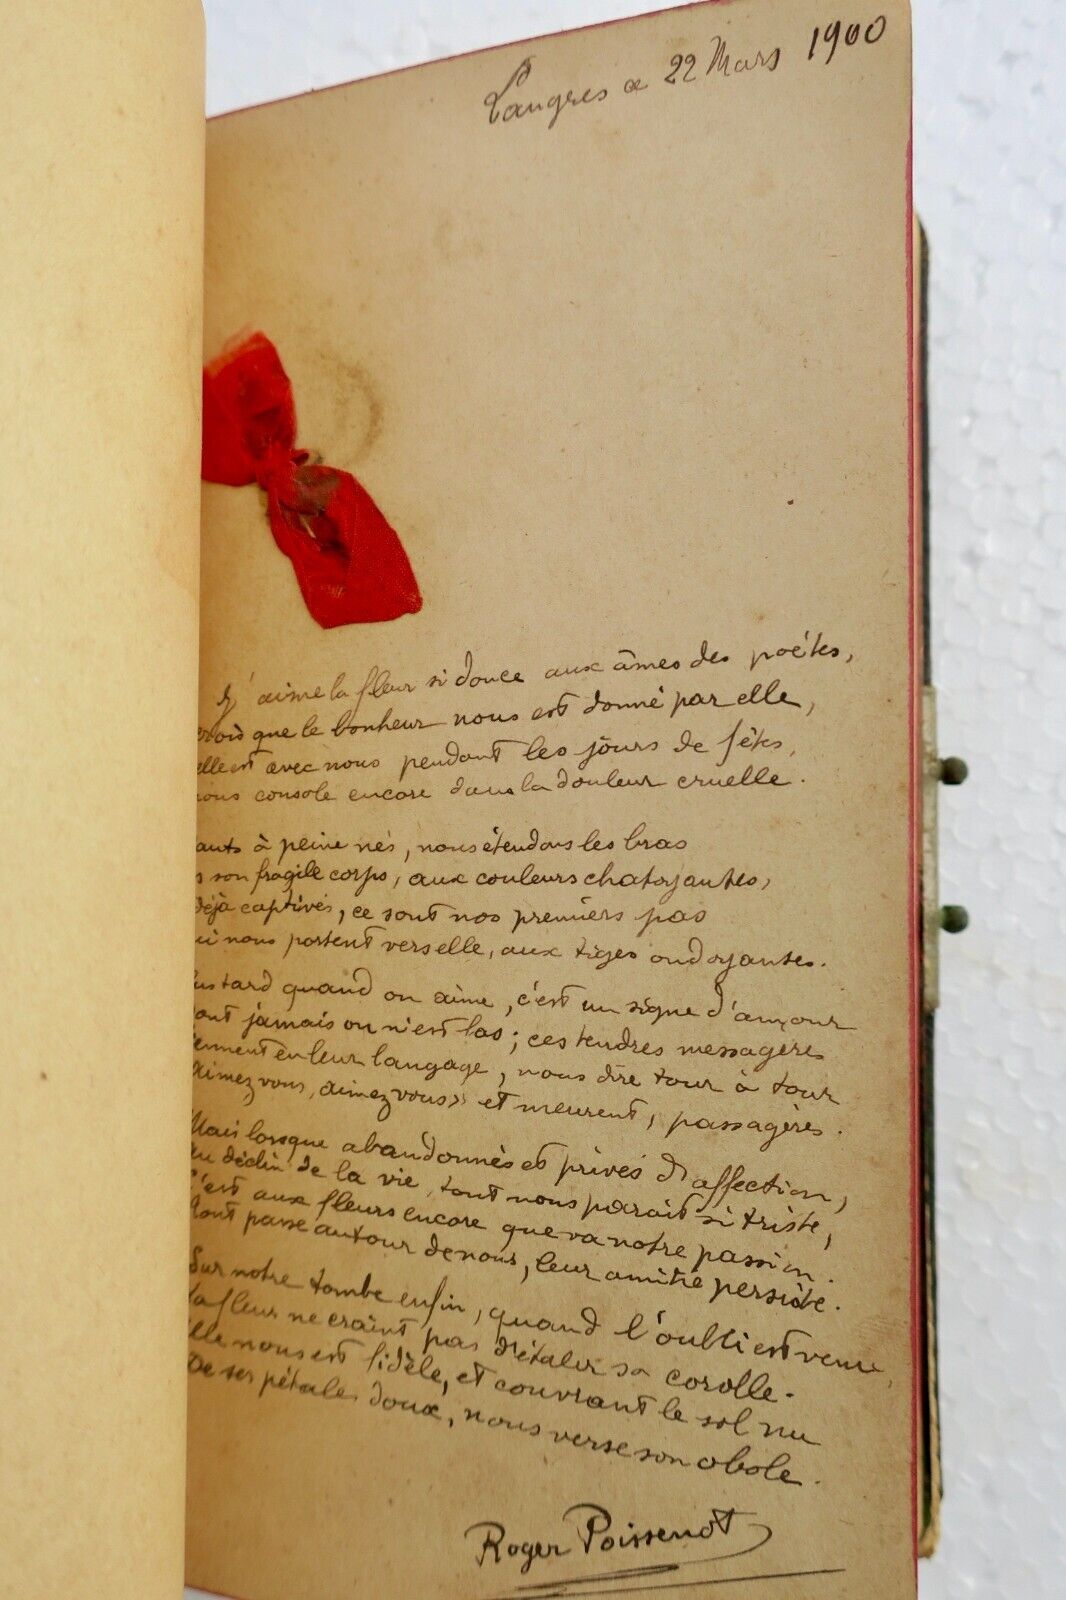 Langres le 22 Mars 1900
J'aime la fleur si douce aux âmes des poétes,
crois que le bonheur nous est donné par elle,
elle est avec nous pendant les jours de fêtes,
nous console encore dans la douleur cruelle.
ants à peine nés, nous étendons les bras
s son fragile corps, aux couleurs chatoyantes,
déjà captivés, ce sont nos premiers pas
ui nous portent vers elle, aux tiges ondoyantes.
lus tard quand on aime, c'est un signe d'amour
ont jamais on n'est las; ces tendres messagères
iennent en leur langage, nous dire tour à tour
aimez vous, aimez vous» et meurent, passagères.
Mais lorsque abandonnés et privés d'affection,
Au déclin de la vie, tout nous parait si triste,
C'est aux fleurs encore que va notre passion.
Tout passe autour de nous, leur amitié persiste.
Sur notre tombe enfin, quand l'oubli est venu,
La fleur ne craint pas d'étaler sa corolle.
Elle nous est fidèle, et couvrant le sol nu
De ses pétales doux, nous verse son obole.
Roger Poissenot